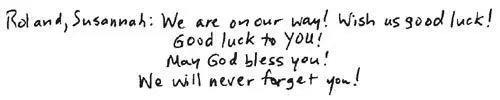 Roland, Susannah: We are on our way! Wish us good luck!
Good luck to YOU!
May God bless you!
We will never forget you!